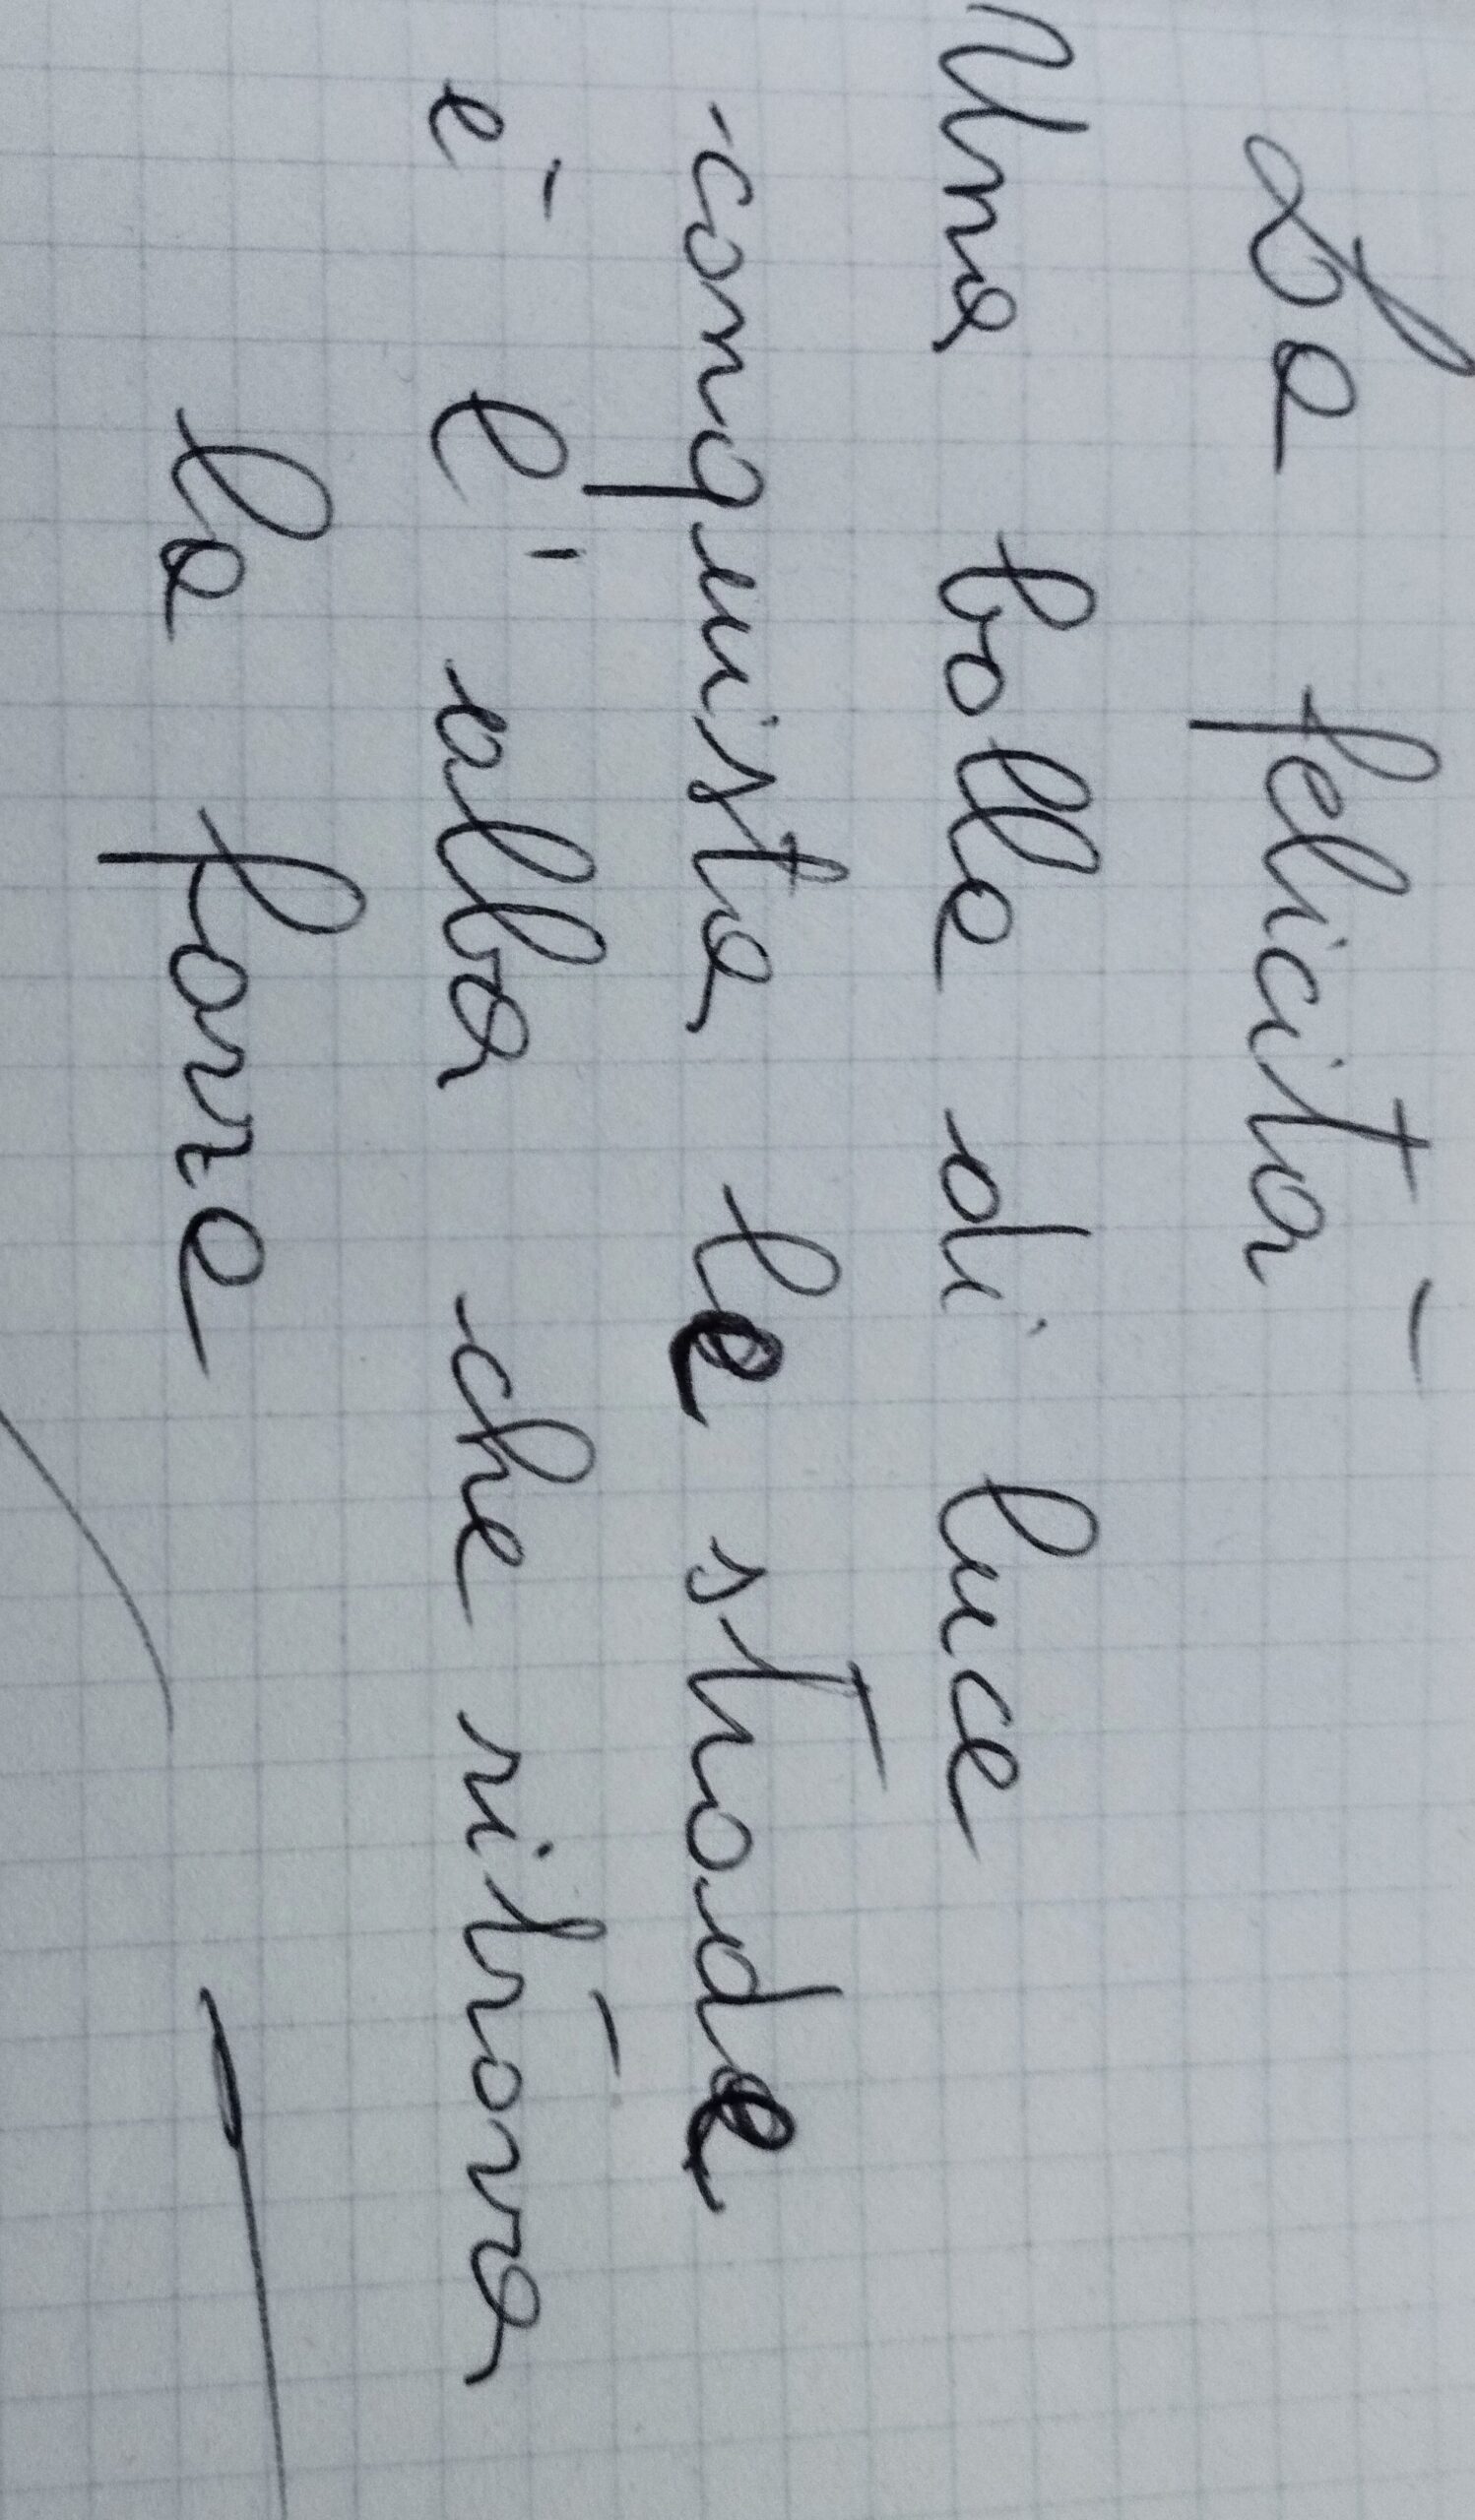 La felicità
Una bolla di luce
conquista le strade
è l'alba che ritrova
la forza